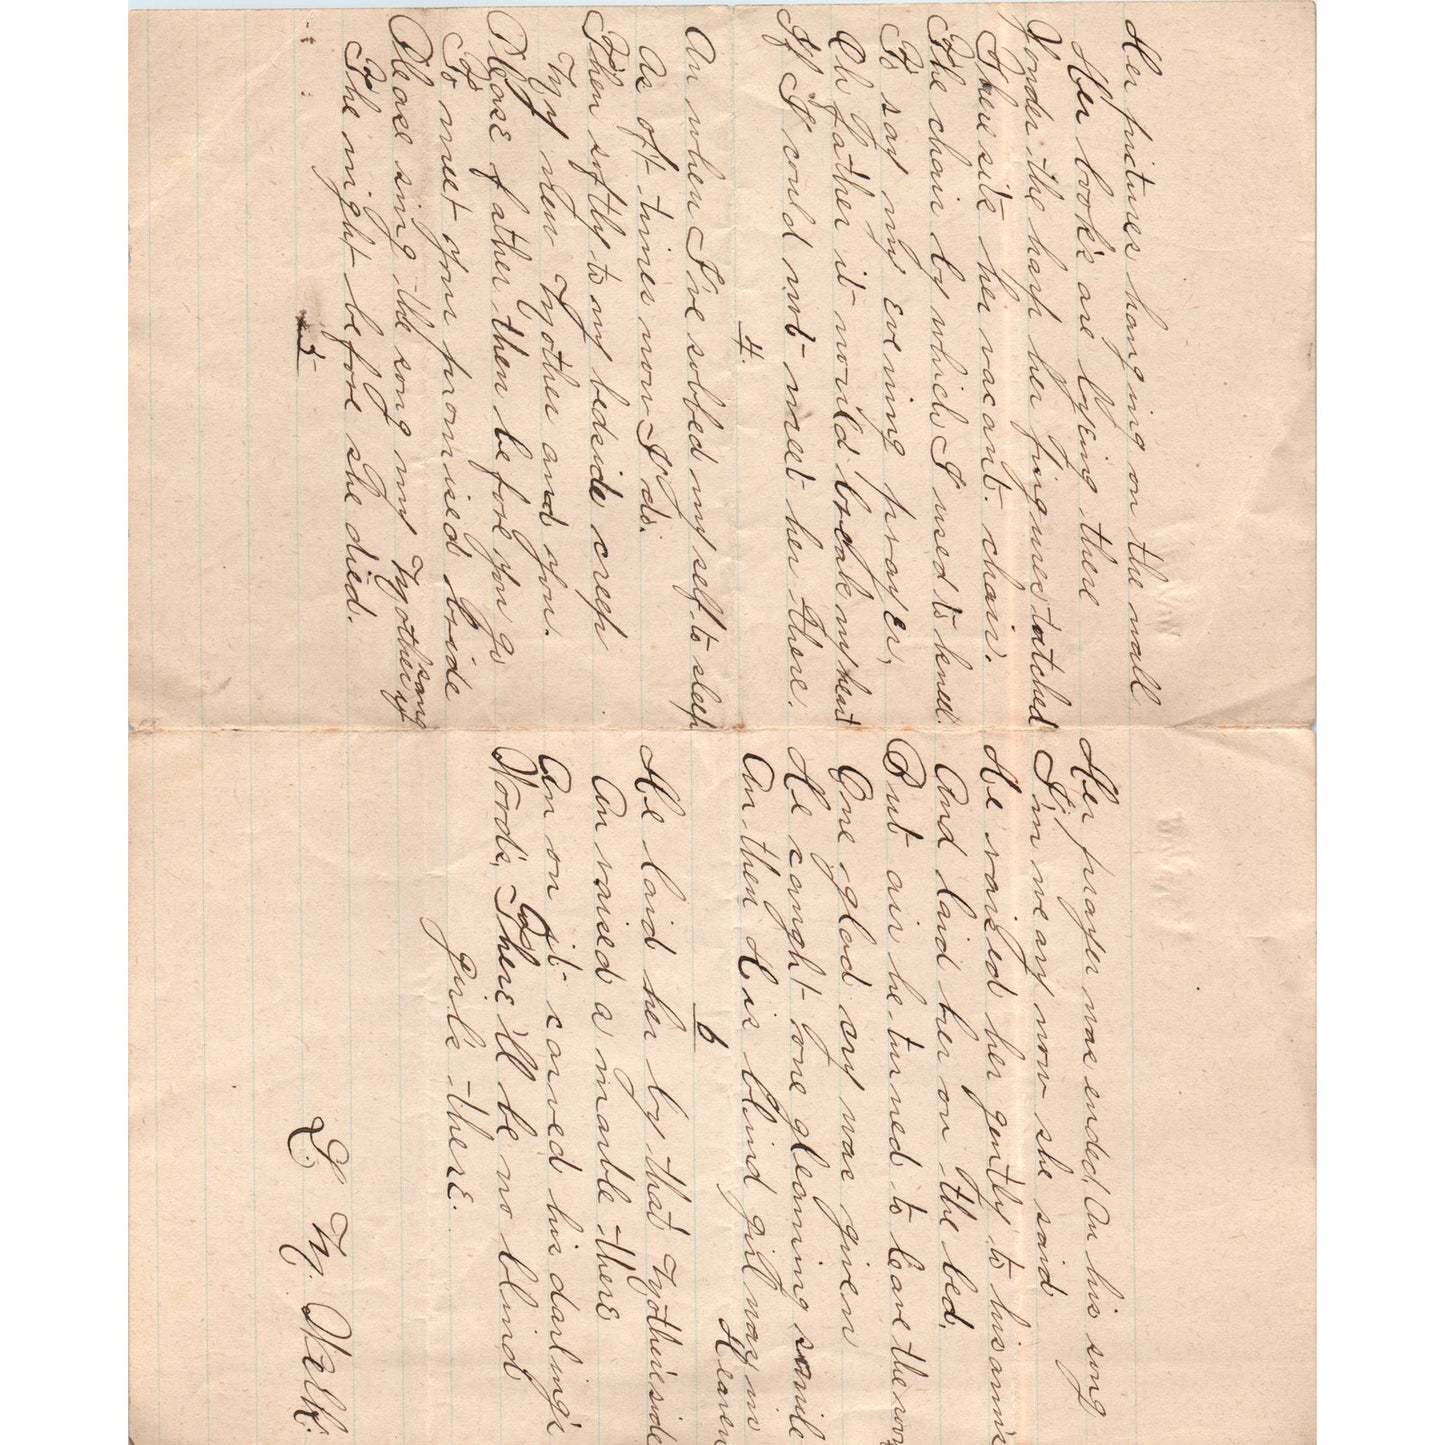 Her pictures hanging on the wall
Her book's are lyeing there
Yonder the harp her fingures totched
There sits her vacant chair.
The chair by which I used to kneel
To say my evening prayer,
Oh father it would break my heart
If I could not meet her there.
4.
An when I've sobbed my self to sleep
As oft times now I do.
Then softly to my bedside creep
My new Mother and you.
Please father then before you go
To meet your promised bride
Please sing the song my Mother sang
The night before she died.
5
Her prayer was ended An his song
I'm weary now she said
He raised her gently to his arm's
And laid her on the bed.
But air he turned to leave the room
One glad cry was given
He caught one gleaming smile
An then His blind girl was in
Heaven
6
He laid her by that Mother's side
An raised a marble there
An on it carved his darling's
Word's, There'll be no blind
girls there.
L. M. Walk.